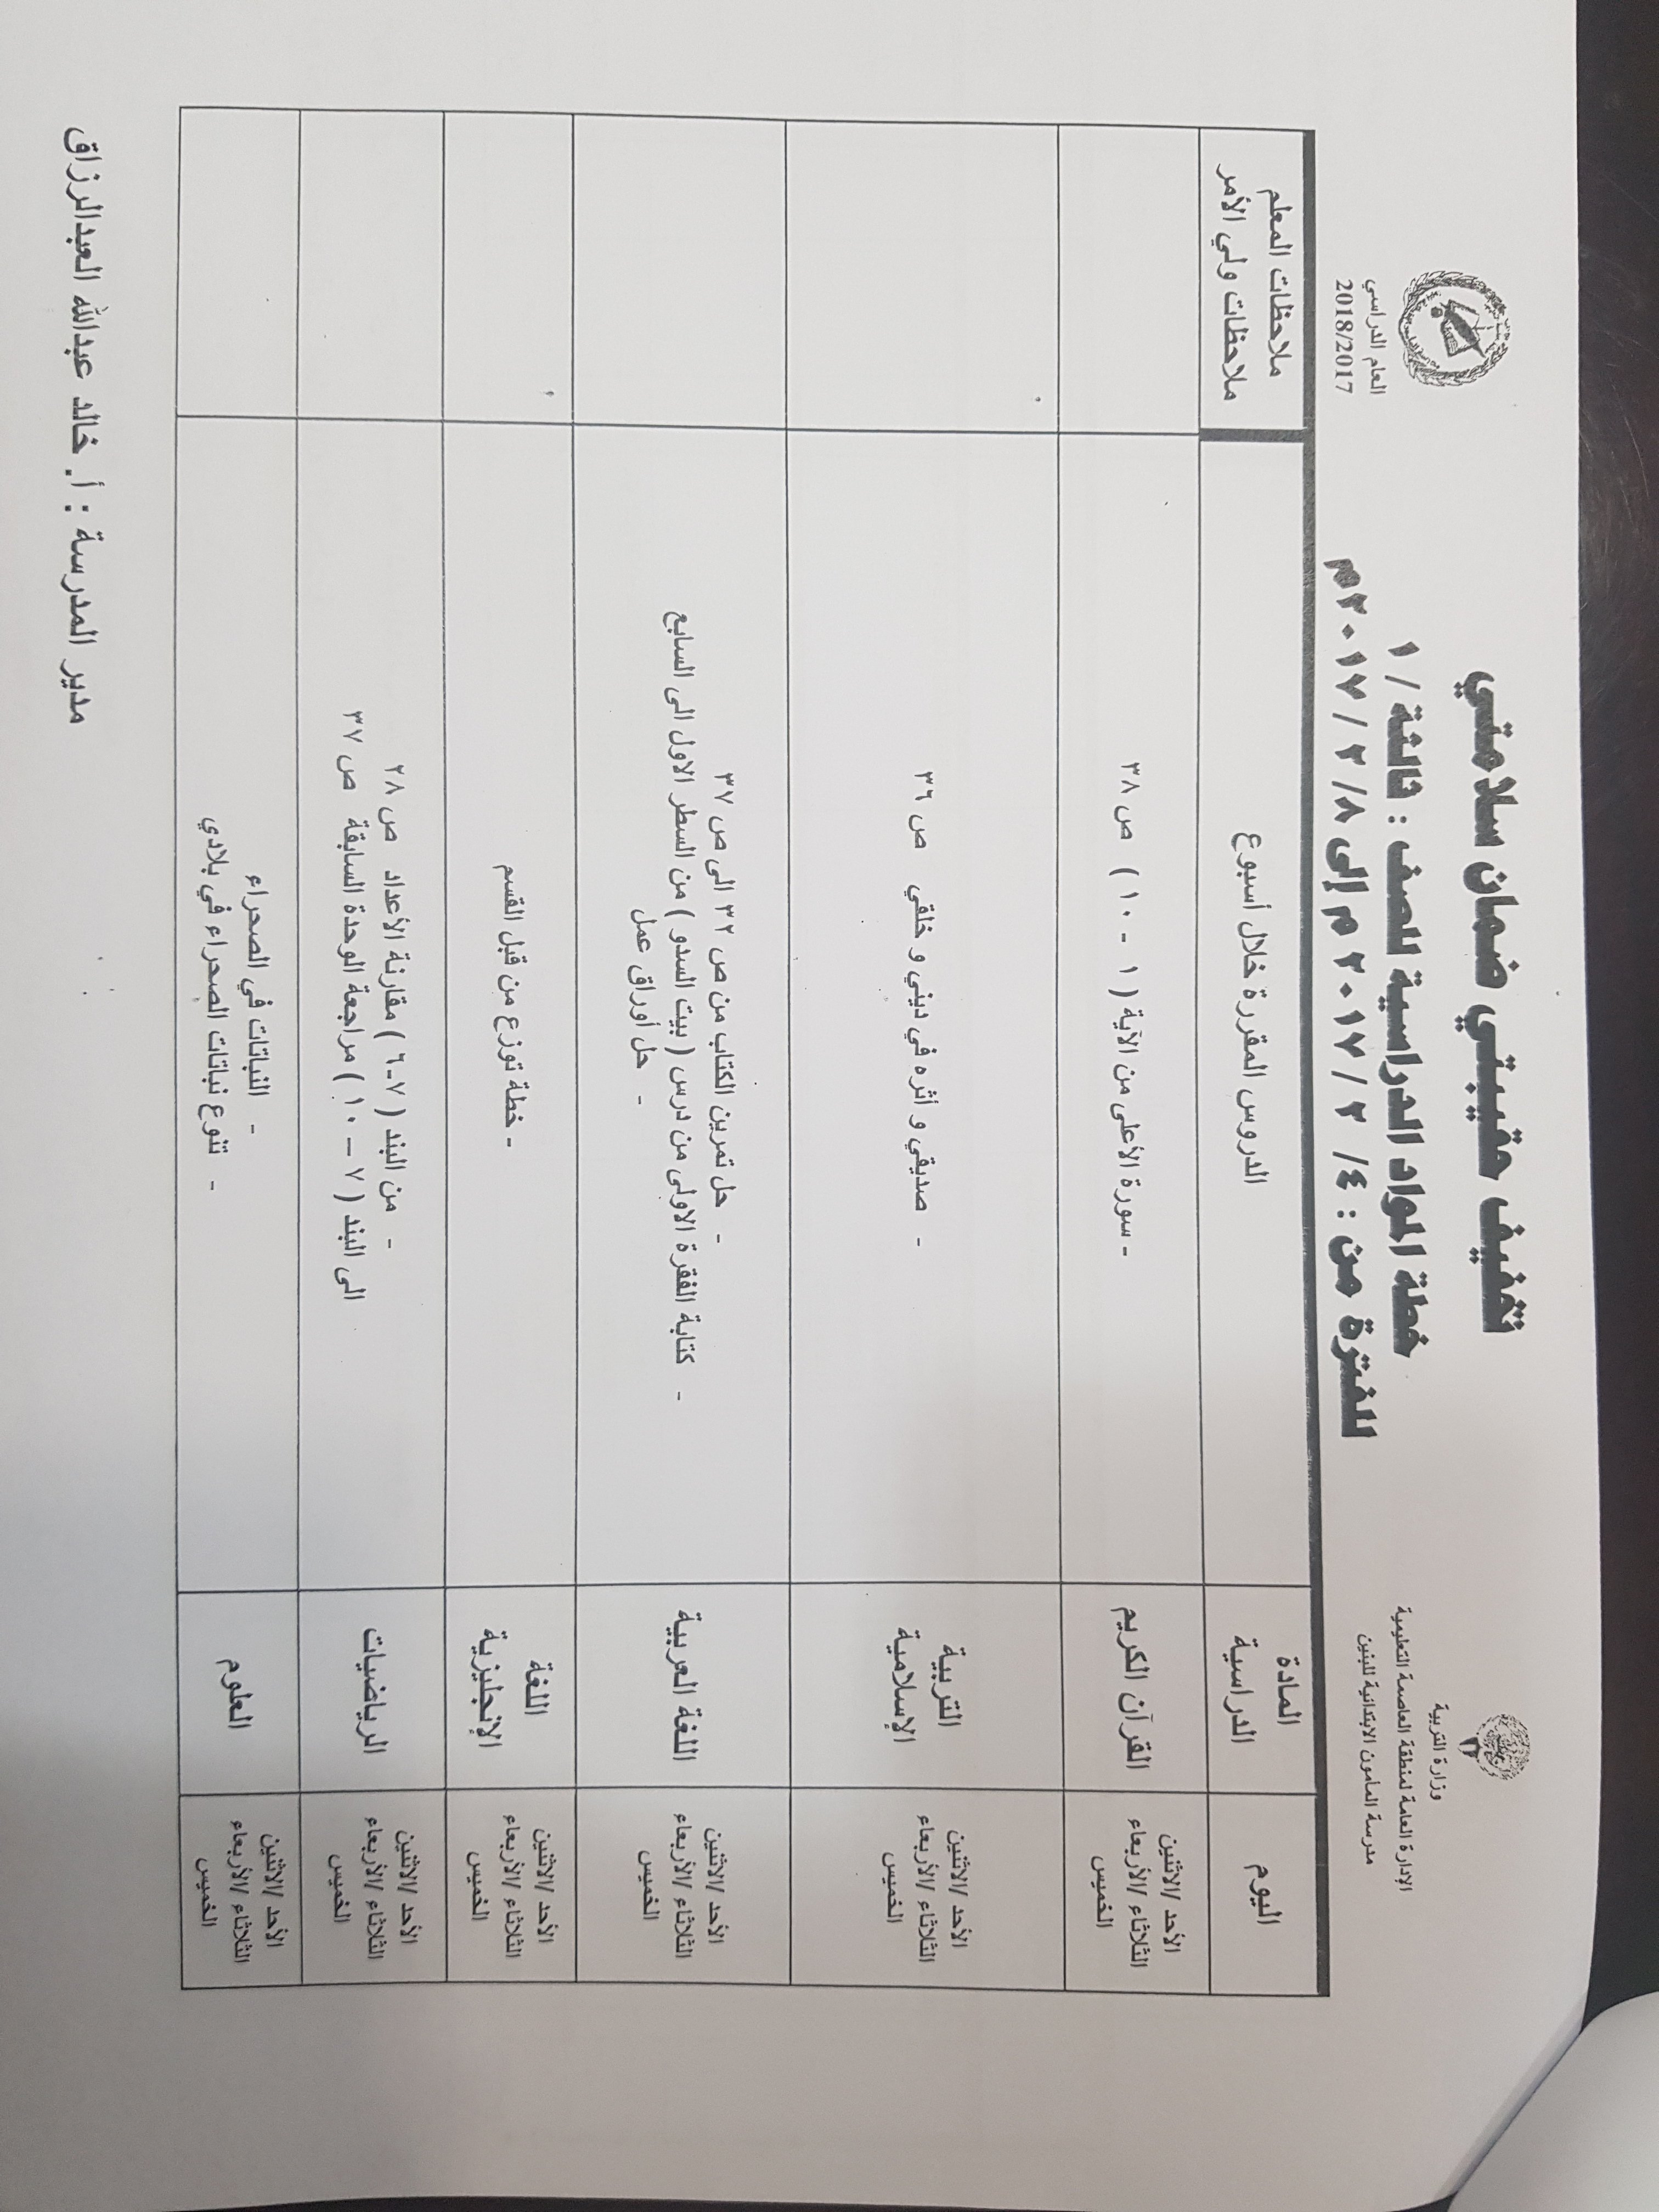 وزارة التربية
الإدارة العامة لمنطقة العاصمة التعليمية
مدرسة المامون الابتدائية للبنين
تخفيف حقيبتي ضمان سلامتي
خطة المواد الدراسية للصف : ثالثة / ١
للفترة من : ٤/ ٢ / ٢٠١٧ م إلى ٨/ ٢ / ٢٠١٧م
العام الدراسي
2018/2017
اليوم
المادة
الدراسية
الدروس المقررة خلال أسبوع
ملاحظات المعلم
ملاحظات ولي الأمر
الأحد /الاثنين
الثلاثاء /الأربعاء
الخميس
القرآن الكريم
- سورة الأعلى من الآية ( ١ - ١٠ ) ص ٣٨
الأحد /الاثنين
الثلاثاء /الأربعاء
الخميس
التربية
لإسلامية
- صديقي و أثره في ديني و خلقي ص ٣٦
الأحد /الاثنين
الثلاثاء /الأربعاء
الخميس
اللغة العربية
- حل تمرين الكتاب من ص ٣٢ الى ص ٣٧
- كتابة الفقرة الاولى من درس ( بيت السدو ) من السطر الاول الى السابع
- حل أوراق عمل
الأحد /الاثنين
الثلاثاء /الأربعاء
الخميس
اللغة
الإنجليزية
- خطة توزع من قبل القسم
الأحد /الاثنين
الثلاثاء /الأربعاء
الخميس
الرياضيات
- من البند ( ٧-٦ ) مقارنة الأعداد ص ٢٨
الى البند ( ٧ – ١٠ ) مراجعة الوحدة السابقة ص ٣٧
الأحد /الاثنين
الثلاثاء /الأربعاء
الخميس
العلوم
- النباتات في الصحراء
- تنوع نباتات الصحراء في بلادي
مدير المدرسة : أ. خالد عبدالله العبدالرزاق